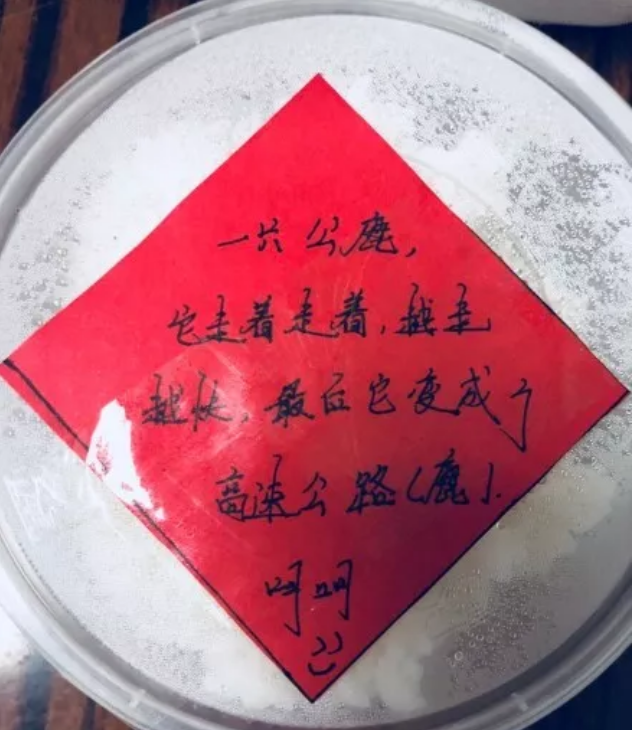 一只公鹿，
它走着走着，越走
越快，最后它变成了
高速公路（鹿）.
呵呵